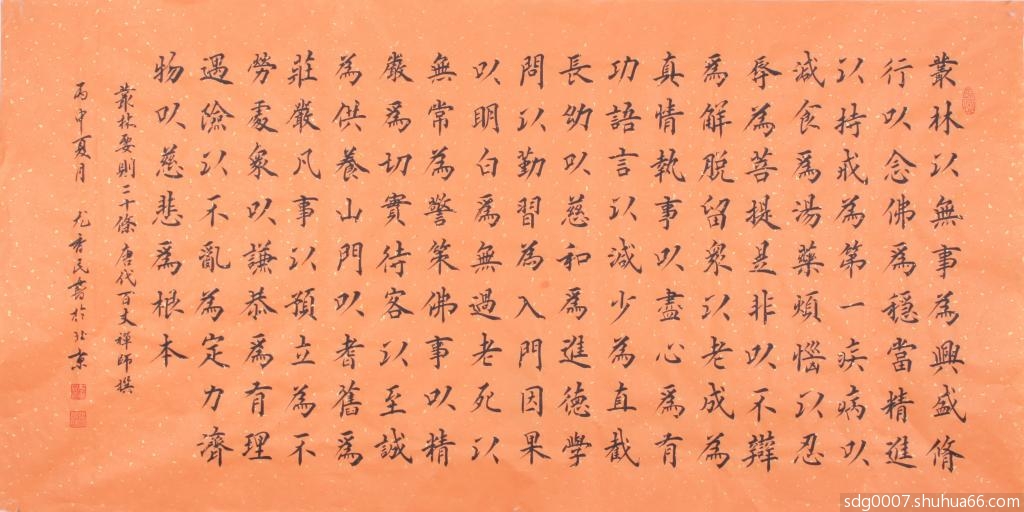 叢林以無事為興盛脩
行以念佛為穩當精進
以持戒為第一疾病以
減食為湯藥煩惱以忍
辱為菩提是非以不辯
為解脫留眾以老成為
真情執事以盡心為有
功語言以減少為直截
長幼以慈和為進德學
問以勤習為入門因果
以明白為無過老死以
無常為警策佛事以精
嚴為切實待客以至誠
為供養山門以耆舊為
莊嚴凡事以預立為不
勞處眾以謙恭為有理
遇險以不亂為定力濟
物以慈悲為根本
叢林要則二十條 唐代百丈禪師撰
丙申夏月 書於北京
sdg0007.shuhua66.com